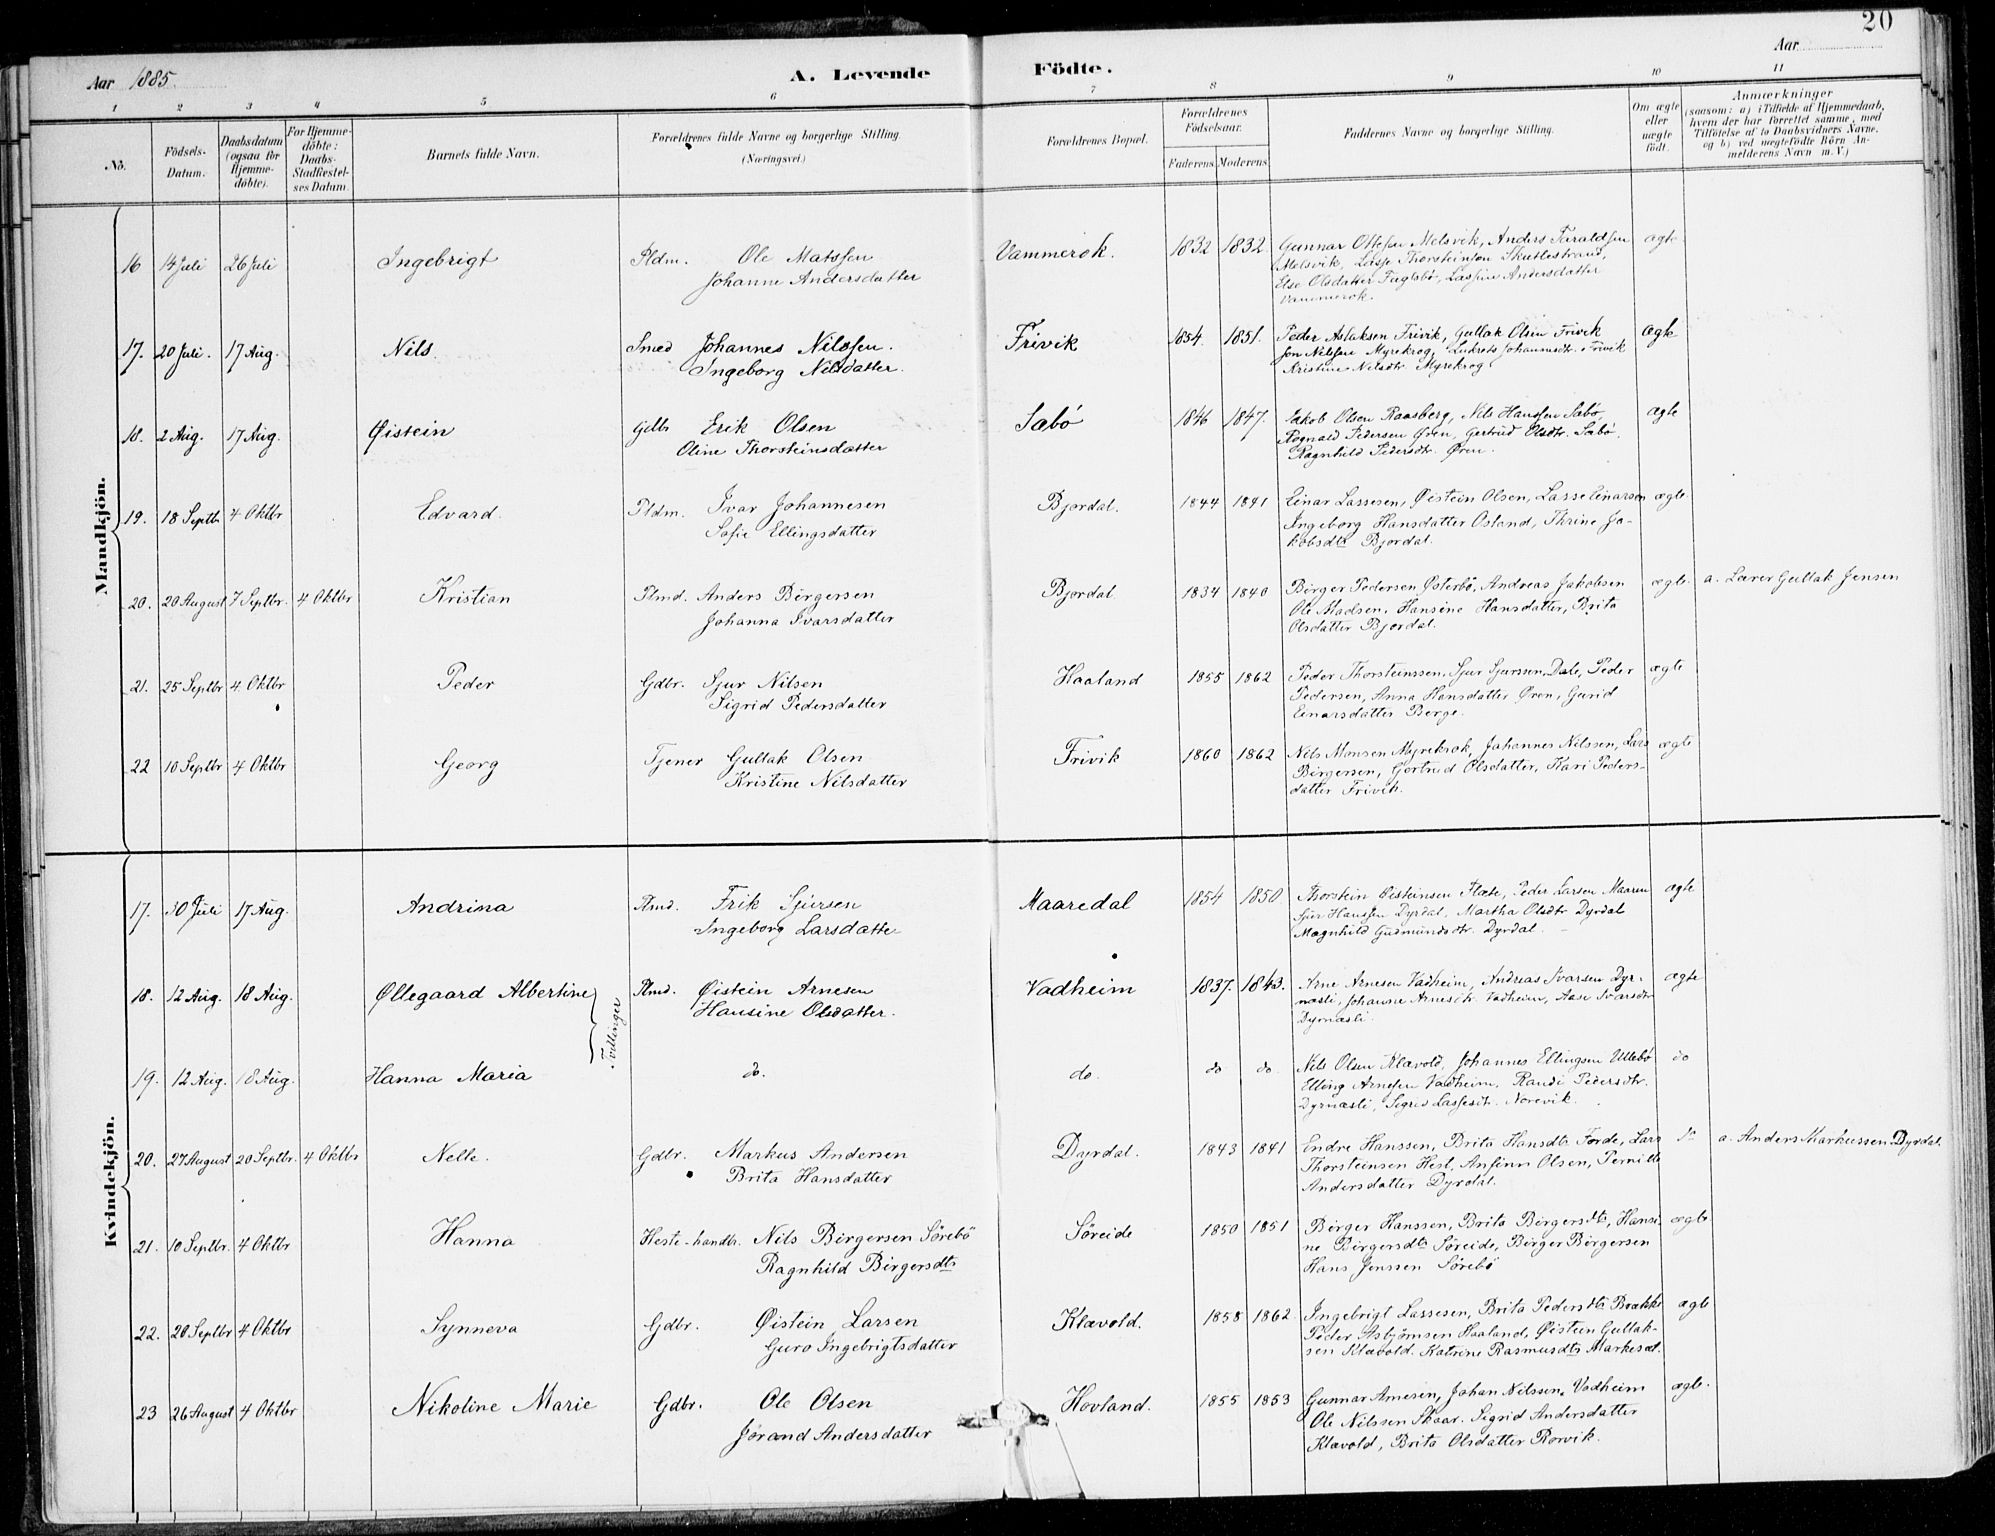 20
Aar 1885. A. Levende Födte. Aar
1 2 3 4 5 6 7 8 9 10 11
No. Födsels-Datum. Daabsdatum (ogsaa for Hjemme-döbte). For Hjemme-döbte: Daabs-Stadfæstel-ses Datum. Barnets fulde Navn. Forældrenes fulde Navne og borgerlige Stilling. (Næringsvei.) Forældrenes Bopæl. Forældrenes Födselsaar. Faderens Moderens Faddernes Navne og borgerlige Stilling. Om ægte eller uægte födt. Anmærkninger (saasom: a) i Tilfælde af Hjemmedaab, hvem der har forrettet samme, med Tilföielse af to Daabsvidners Navne, og b) ved uægtefödte Börn An-melderens Navn m. V.)
Mandkjön.
16 14 Juli 26 Juli Ingebrigt Pldm. Ole Matssen Vammerok. 1832 1832 Gunnar Ottesen Melsvik, Anders Taraldsen ægte
Johanne Andersdatter Melsvik, Lasse Thorsteinsen Skutlestrand,
Else Olsdatter Fuglebø, Lassine Andersdatter
Vammerok.
17. 20 Juli. 17 Aug. Nils. Smed Johannes Nilssen. Frivik 1854. 1851. Peder Aslaksen Frivik, Gullak Olsen Frivik ægte
Ingeborg Nilsdatter. Jon Nilssen Myrekrog, Lukrets Johannesdtr. Frivik
Kristine Nilsdtr Myrekrog
18. 2 Aug. 17 Aug. Øistein Gdbr Erik Olsen Sæbø 1846 1847. Jakob Olsen Raasberg, Nils Hanssen Sæbø, ægte
Oline Thorsteinsdatter Rognald Pedersen Øren, Gertrud Olsdtr. Sæbø,
Ragnhild Pedersdtr. Øren.
19. 18 Septbr 4 Oktbr Edvard. Pldm. Ivar Johannesen Bjordal. 1844 1841 Einar Lassesen, Øistein Olsen, Lasse Einarsen ægte
Sofie Ellingsdatter Ingeborg Hansdatter Osland, Thrine Ja-
kobsdtr Bjordal.
20. 20 August 7 Septbr. 4 Oktbr Kristian Plmd. Anders Børgersen Bjordal 1834 1840 Børger Pedersen Østerbø, Andreas Jakobsen ægte a. Lærer Gullak Jensen
Johanna Ivarsdatter Ole Madsen, Hansine Hansdatter, Brita
Olsdatter Bjordal.
21. 25 Septbr 4 Oktbr Peder Gdbr. Sjur Nilsen Haaland 1855 1862 Peder Thorsteinssen, Sjur Sjurssen Dale, Peder ægte
Sigrid Pedersdatter Pedersen, Anna Hansdatter Øren, Gurid
Einarsdatter Berge.
22 10 Septbr 4 Oktbr Georg Tjener Gullak Olsen Frivik 1860 1862 Nils Monsen Myrekrok, Johannes Nilssen, Lars ægte
Kristine Nilsdatter Børgersen, Gertrud Olsdatter, Kari Peders-
datter Frivik.
Kvindekjön.
17. 30 Juli 17 Aug. Andrina Plmd. Erik Sjursen Maaredal 1854 1850 Thorstein Øisteinsen Flæte, Peder Larsen Maaren ægte
Ingeborg Larsdatte Sjur Hanssen Dyrdal, Martha Olsdtr Dyrdal
Magnhild Gudmundsdtr. Dyrdal.
18. 12 Aug. 18 Aug. Øllegaard Albertine Tvillinger Plmd. Øistein Arnesen Vadheim 1837. 1843. Arne Arnesen Vadheim, Andreas Ivarsen Dyr- ægte
Hansine Olsdatter. næsli, Johanne Arnesdtr. Vadheim, Aase Ivarsdtr
Dyrnæsli.
19. 12 Aug. 18 Aug. Hanna Maria do. do. do do Nils Olsen Klævold, Johannes Ellingsen Ullebø do
Elling Arnesen Vadheim, Randi Pedersdtr.
Dyrnæsli, Sigrid Lassesdtr. Norevik.
20. 27 August 20 Septbr. 4 Oktbr Nelle. Gdbr. Markus Andersen Dyrdal. 1843 1841 Endre Hanssen, Brita Hansdtr Førde, Lars do a. Anders Markussen Dyrdal
Brita Hansdatter Thorsteinsen Hest, Ansinn Olsen, Pernille
Andersdatter Dyrdal.
21. 10 Septbr. 4 Oktbr Hanna Heste-handlr. Nils Børgersen Sörebö Søreide 1850 1851 Børger Hanssen, Brita Børgersdtr, Hansi- ægte
Ragnhild Børgersdtr ne Børgersdtr Søreide, Børger Børgersen
Hans Jenssen Sörebö
22. 20 Septbr 4 Oktbr Synneva Gdbr. Øistein Larsen Klævold. 1858 1862 Ingebrigt Lassesen, Brita Pedersdtr Brække ægte
Guro Ingebrigtsdatter Peder Asbjørnsen Haaland, Øistein Gullak-
sen Klævold. Katrine Rasmusdtr Markesæt.
23 26 August 4 Oktbr Nikoline Marie Gdbr. Ole Olsen Hovland. 1855 1853 Gunnar Arnesen, Johan Nilssen, Vadheim ægte.
Jørand Andersdatter Ole Nilssen Skaar. Sigrid Andersdatter
Klævold, Brita Olsdatter Rørvik.